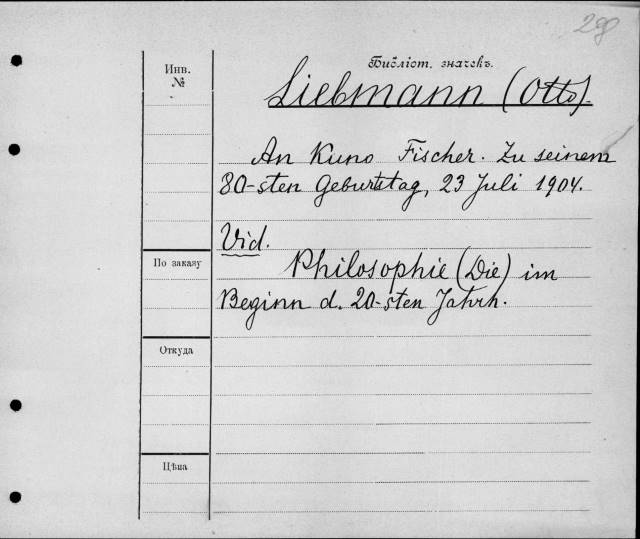 298
Инв.
№
Библіот. значекъ.
Liebmann (Otto).
An Kuno Fischer. Zu seinem
80-sten Geburtstag, 23 Juli 1904.
Vid.
По заказу
Philosophie (Die) im
Beginn d. 20-sten Jahrh.
Откуда
Цѣна